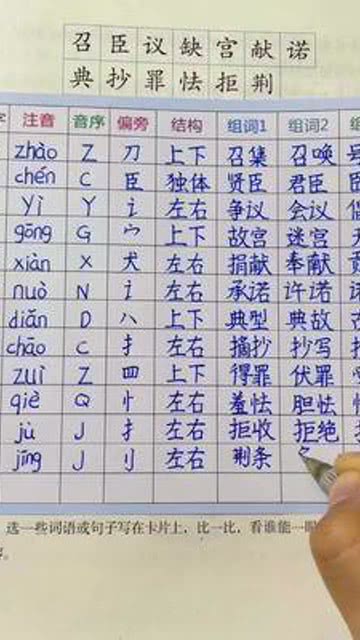 召臣议缺宫献诺
典抄罪怯拒荆
注音 音序 偏旁 结构 组词1 组词2
zhào Z 刀 上下 召集 召唤
chén C 臣 独体 贤臣 君臣
yì Y 讠 左右 争议 会议
gōng G 宀 上下 故宫 迷宫
xiàn X 犬 左右 捐献 奉献
nuò N 讠 左右 承诺 许诺
diǎn D 八 上下 典型 典故
chāo C 扌 左右 摘抄 抄写
zuì Z 罒 上下 得罪 伏罪
qiè Q 忄 左右 羞怯 胆怯
jù J 扌 左右 拒收 拒绝
jīng J 刂 左右 荆条
选一些词语或句子写在卡片上，比一比，看谁能一眼